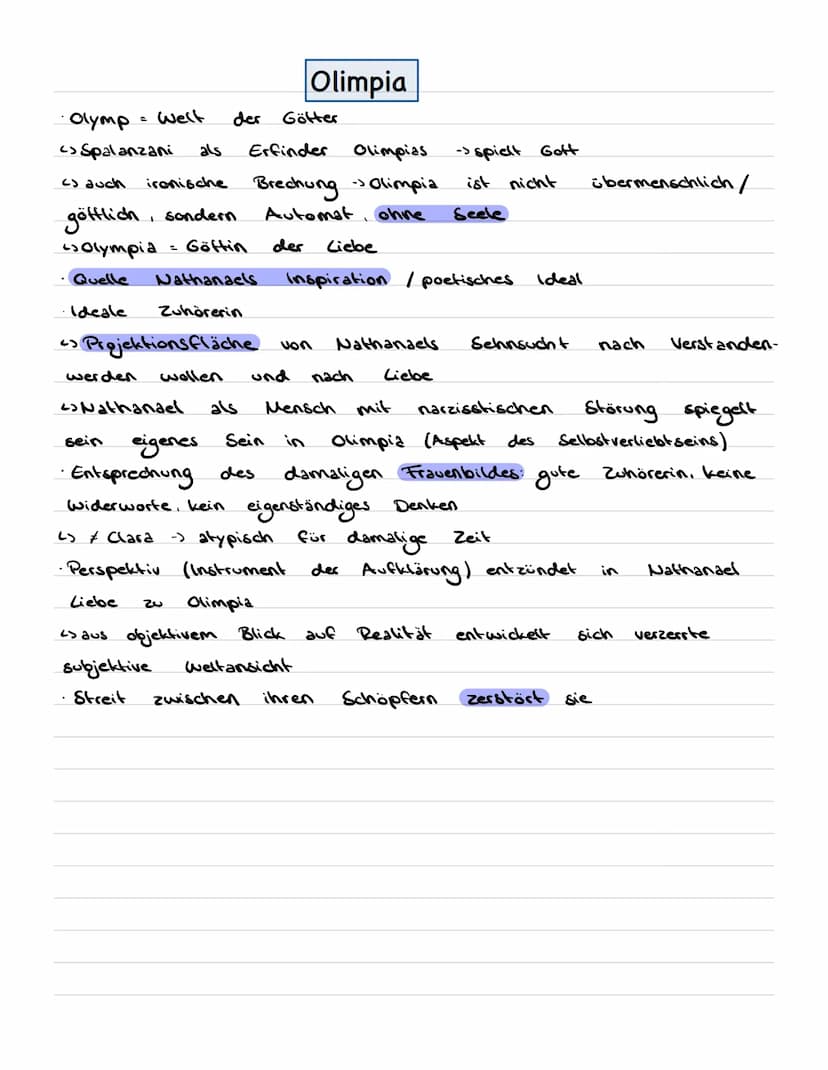 Olimpia
· Olymp = Welt der Götter
↳ Spalanzani als Erfinder Olimpias -> spielt Gott
↳ auch ironische Brechung -> Olimpia ist nicht übermenschlich/
göttlich, sondern Automat, ohne Seele
↳ Olympia = Göttin der Liebe
· Quelle Nathanaels Inspiration / poetisches Ideal
· Ideale Zuhörerin
↳ Projektionsfläche von Nathanaels Sehnsucht nach Verstanden-
werden wollen und nach Liebe
↳ Nathanael als Mensch mit narzisstischen Störung spiegelt
sein eigenes Sein in Olimpia (Aspekt des Selbstverliebtseins)
· Entsprechnung des damaligen Frauenbildes: gute Zuhörerin, keine
Widerworte, kein eigenständiges Denken
↳ ≠ Clara -> atypisch für damalige Zeit
· Perspektiv (Instrument der Aufklärung) entzündet in Nathanael
Liebe zu Olimpia
↳ aus objektivem Blick auf Realität entwickelt sich verzerrte
subjektive Weltansicht
· Streit zwischen ihren Schöpfern zerstört sie